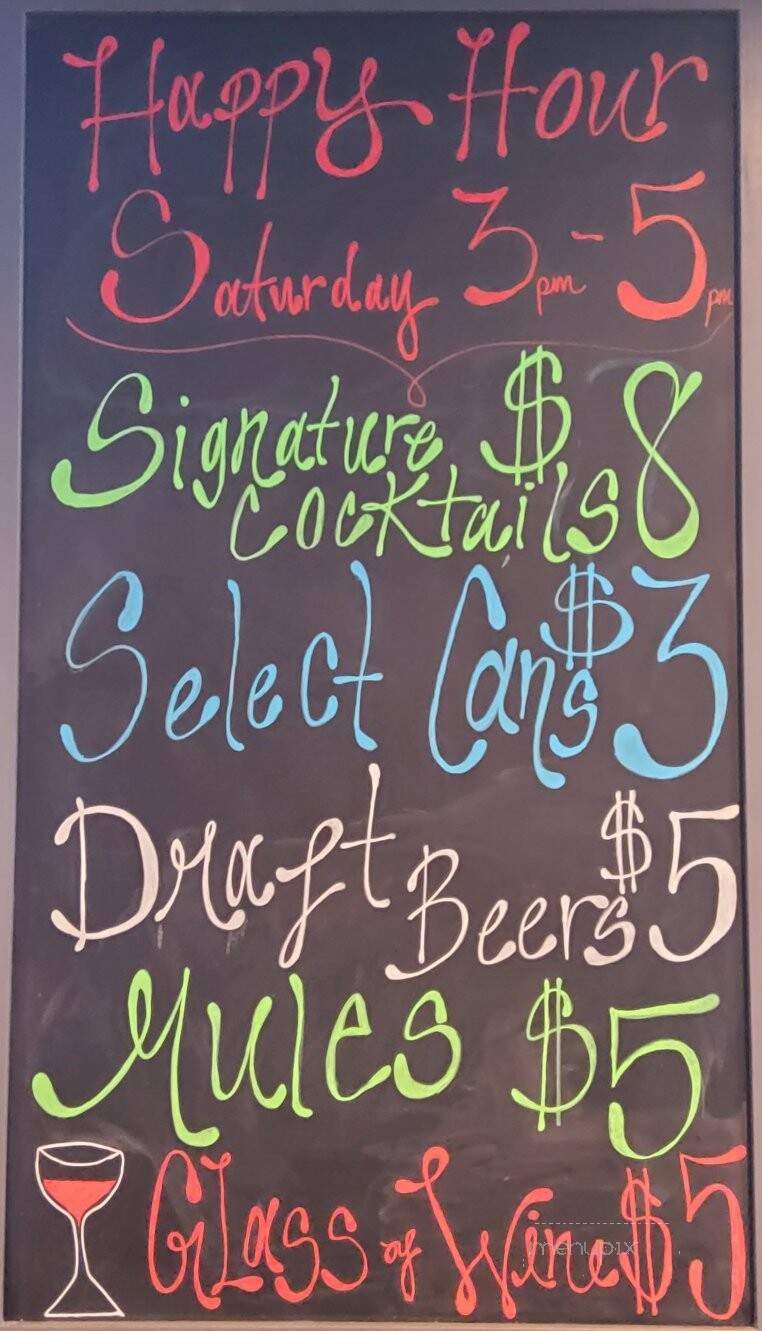 Happy Hour
Saturday 3pm - 5pm
Signature $8
Cocktails
Select Cans $3
Draft Beers $5
Mules $5
Glass of Wine $5
menupix